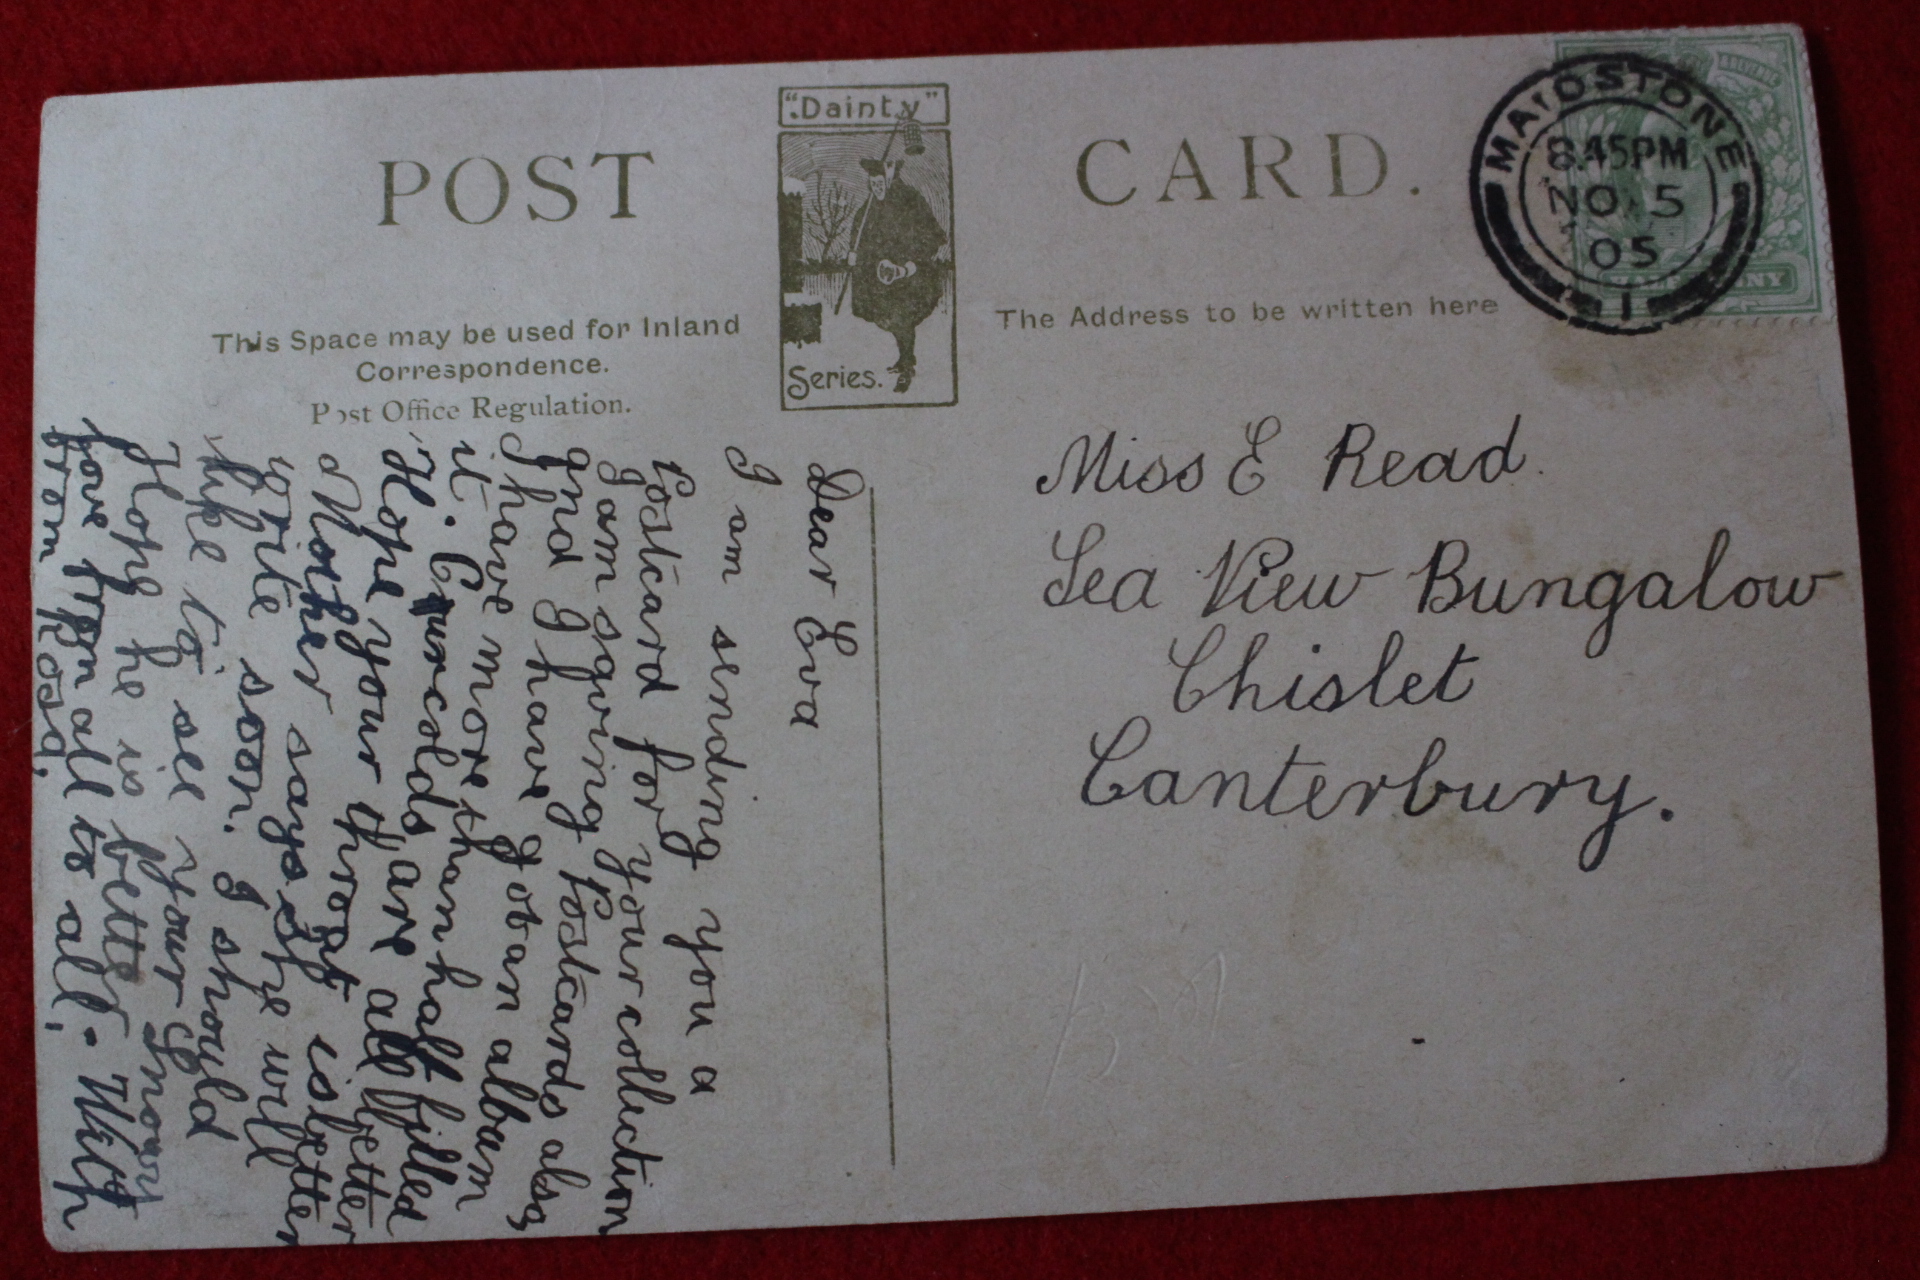 "Dainty"
Series.
POST CARD.
This Space may be used for Inland
Correspondence.
Post Office Regulation.
The Address to be written here
MAIDSTONE
8.45PM
NO 5
05
1
HALFPENNY
Miss E Read.
Sea View Bungalow
Chislet
Canterbury.
Dear Eva
I am sending you a
Postcard for your collection
I am saving Postcards also
and I have got an album
I have more than half filled
it. Our colds are all better
Hope your throat is better
Mother says she will
write soon. I should
like to see your
Hope he is better. With
love from all to all.
from Rosa.